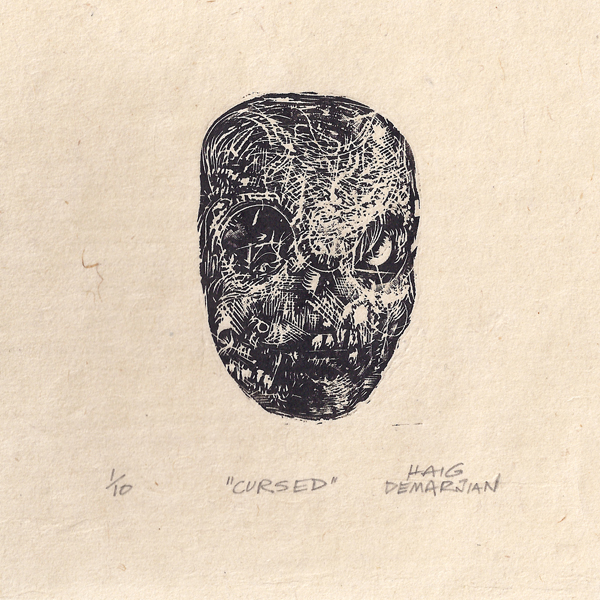 1/10 "CURSED" HAIG
DEMARJIAN